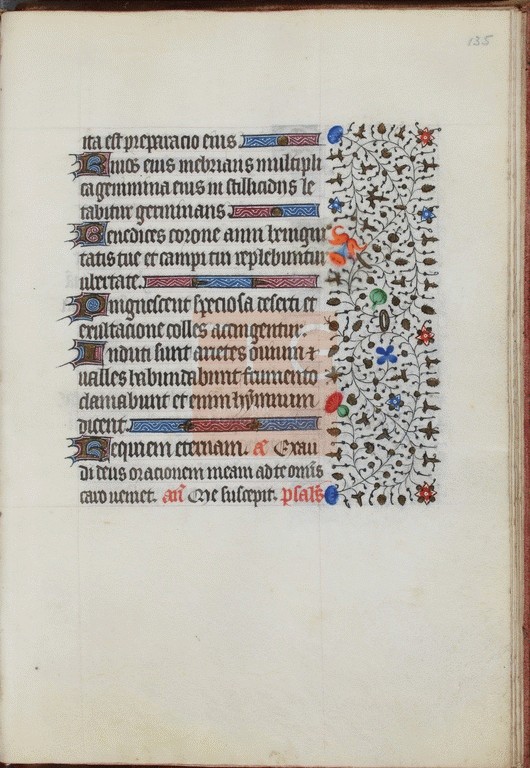 135
ita est preparacio eius
Riuos eius inebrians multipli
ca genimina eius in stillicidiis le
tabitur germinans.
Benedices corone anni benigni
tatis tue et campi tui replebuntur
ubertate.
Pinguescent speciosa deserti et
exultacione colles accingentur.
Induti sunt arietes ouium &
ualles habundabunt frumento
clamabunt et enim hymnum
dicent.
Requiem eternam. ae Exau
di deus orationem meam ad te omnis
caro ueniet. añ Me suscepit. psalms